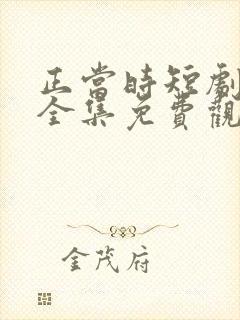 正當時短劇
全集免費觀
金茂府